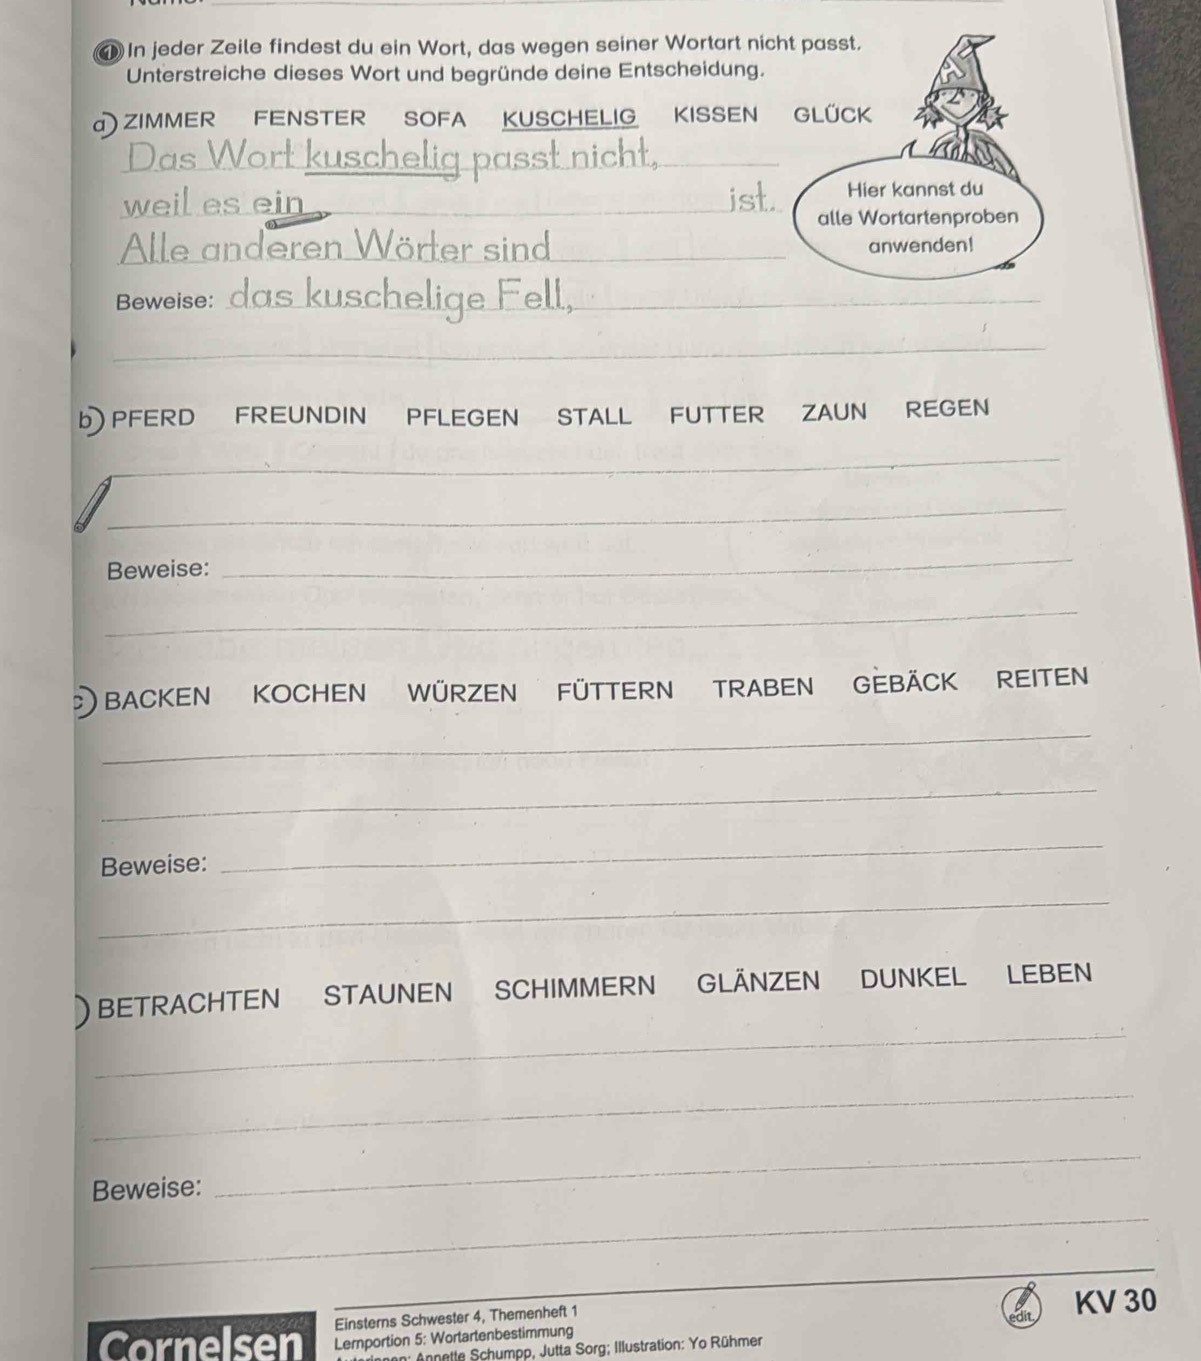 1 In jeder Zeile findest du ein Wort, das wegen seiner Wortart nicht passt.
Unterstreiche dieses Wort und begründe deine Entscheidung.
a) ZIMMER FENSTER SOFA KUSCHELIG KISSEN GLÜCK
Das Wort kuschelig passt nicht,
weil es ein ist.
Hier kannst du
alle Wortartenproben
anwenden!
Alle anderen Wörter sind
Beweise: das kuschelige Fell,
b) PFERD FREUNDIN PFLEGEN STALL FUTTER ZAUN REGEN
Beweise:
c) BACKEN KOCHEN WÜRZEN FÜTTERN TRABEN GEBÄCK REITEN
Beweise:
) BETRACHTEN STAUNEN SCHIMMERN GLÄNZEN DUNKEL LEBEN
Beweise:
Cornelsen
Einsterns Schwester 4, Themenheft 1
Lernportion 5: Wortartenbestimmung
Annette Schumpp, Jutta Sorg; Illustration: Yo Rühmer
edit.
KV 30